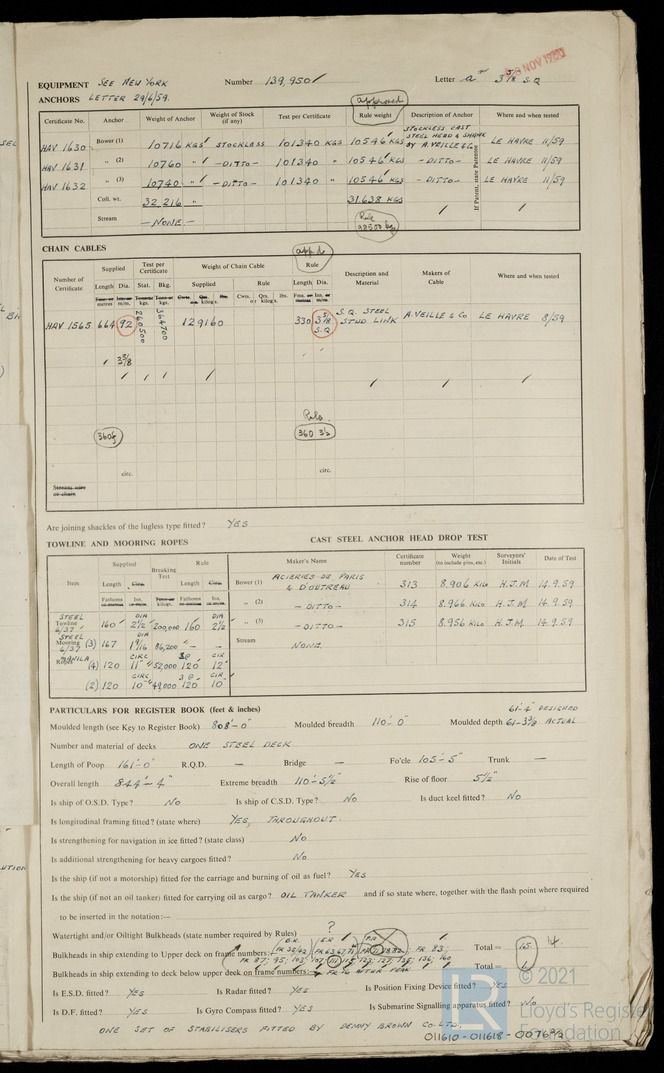 EQUIPMENT SEE NEW YORK Number 139,950 Letter a 3 5/8 S.Q
NOV
ANCHORS LETTER 29/6/59. approved
Certificate No. Anchor Weight of Anchor Weight of Stock (if any) Test per Certificate Rule weight Description of Anchor Where and when tested
If Patent, state Patentee
STOCKLESS CAST STEEL HEAD & SHANK BY A. VEILLE & Co
HAV 1630 Bower (1) 10716 KGS STOCKLESS 101340 KGS 10546 KGS LE HAVRE 11/59
HAV 1631 „ (2) 10760 „ —DITTO— 101340 „ 10546 KGS —DITTO— LE HAVRE 11/59
HAV 1632 „ (3) 10740 „ —DITTO— 101340 „ 10546 KGS —DITTO— LE HAVRE 11/59
Coll. wt. 32,216 „ 31.638 KGS
Stream —NONE— Rule
CHAIN CABLES app.d
Number of Certificate Supplied Test per Certificate Weight of Chain Cable Rule Description and Material Makers of Cable Where and when tested
Length Dia. Stat. Bkg. Supplied Rule Length Dia.
metres m/m. kgs. kgs. kilogs. Cwts. Qrs. lbs.
HAV 1565 664 92 260500 364700 129160 330 3 5/8 S.Q. S.Q. STEEL STUD LINK A. VEILLE & Co LE HAVRE 8/59
3 5/8
Rule
360f 360 3 5/8
circ. circ.
Stream wire or chain
Are joining shackles of the lugless type fitted? YES
TOWLINE AND MOORING ROPES CAST STEEL ANCHOR HEAD DROP TEST
Item Supplied Breaking Test Rule Maker's Name Certificate number Weight (to include pins, etc.) Surveyors' Initials Date of Test
Length Circ. Length Circ.
Fathoms Int. kilogs. Fathoms Ins.
Bower (1) ACIERIES DE PARIS & D'OUTREAU 313 8.906 KILO H.J.M 14.9.59
„ (2) —DITTO— 314 8.966 KILO H.J.M 14.9.59
„ (3) —DITTO— 315 8.956 KILO H.J.M 14.9.59
Stream NONE.
STEEL Towline 6/37 160 DIA 2½" 200,000 160 DIA 2½
STEEL Mooring 6/37 (3) 167 DIA 1 9/16 86,200 — —
MANILA Ropes (4) 120 CIRC 11" 52,000 120 CIR 12"
(2) 120 CIRC 10" 49,000 120 CIR 10"
PARTICULARS FOR REGISTER BOOK (feet & inches)
61'-4" DESIGNED
Moulded length (see Key to Register Book) 808'-0" Moulded breadth 110'-0" Moulded depth 61-3 3/8 ACTUAL
Number and material of decks ONE STEEL DECK
Length of Poop 161'-0" R.Q.D. — Bridge — Fo'cle 105'-5" Trunk —
Overall length 844'-4" Extreme breadth 110'-5½" Rise of floor 5½"
Is ship of O.S.D. Type? NO Is ship of C.S.D. Type? NO Is duct keel fitted? NO
Is longitudinal framing fitted? (state where) YES, THROUGHOUT.
Is strengthening for navigation in ice fitted? (state class) NO
Is additional strengthening for heavy cargoes fitted? NO
Is the ship (if not a motorship) fitted for the carriage and burning of oil as fuel? YES
Is the ship (if not an oil tanker) fitted for carrying oil as cargo? OIL TANKER and if so state where, together with the flash point where required
to be inserted in the notation:—
Watertight and/or Oiltight Bulkheads (state number required by Rules) ?
Bulkheads in ship extending to Upper deck on frame numbers: FR 83; Total = 15 14.
FR 87; 95; 103;
Bulkheads in ship extending to deck below upper deck on frame numbers:— FR 16 AFTER PEAK Total = 1
Is E.S.D. fitted? YES Is Radar fitted? YES Is Position Fixing Device fitted? YES
Is D.F. fitted? YES Is Gyro Compass fitted? YES Is Submarine Signalling apparatus fitted? NO
ONE SET OF STABILISERS FITTED BY DENNY BROWN CO LTD.
© 2021
Lloyd's Register
Foundation
011610-011618-0076